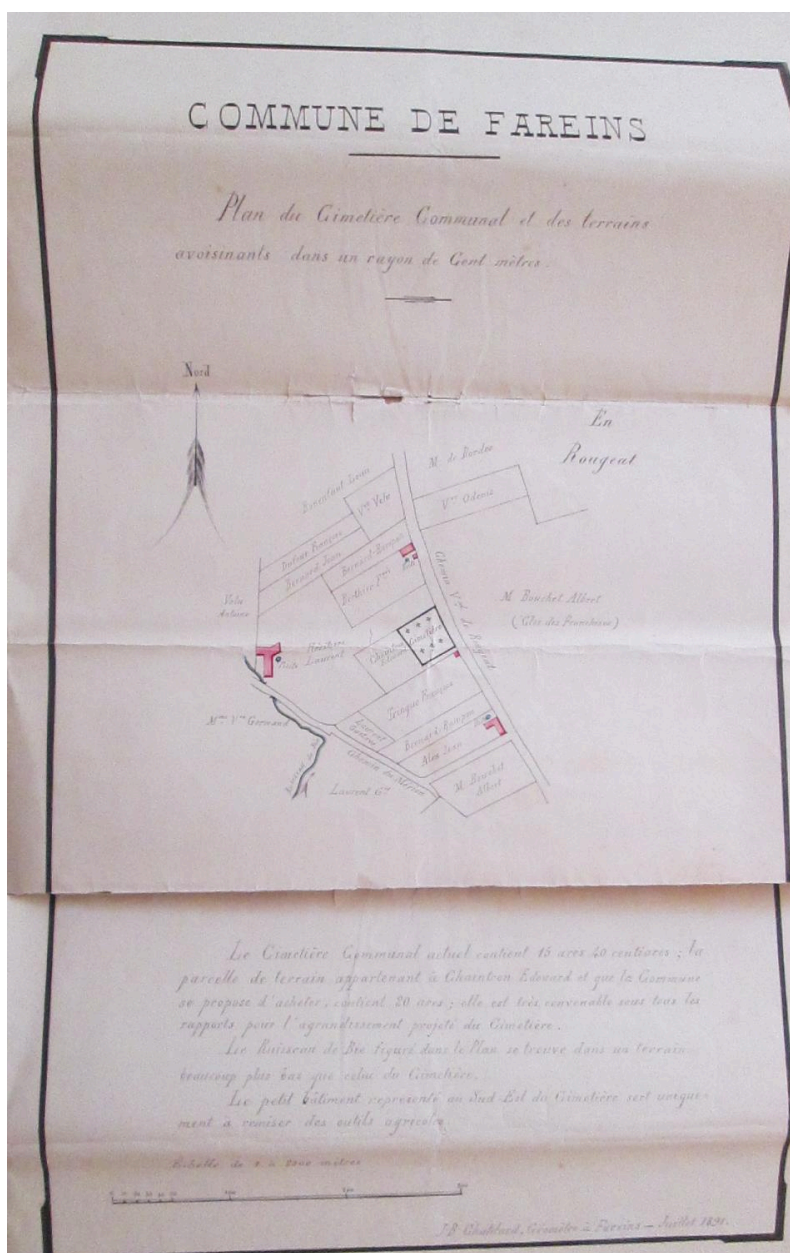 COMMUNE DE FAREINS
Plan du Cimetière Communal et des terrains
avoisinants dans un rayon de Cent mètres.
Nord
En
Rougeat
M. de Bordes
Jean
Vve Odenis
Dufour François
Bernard Jean
Bernard
Berthier
Chemin Val de Rougeat
M. Bouchet Albret
(Clos des
Cimetière
Laurent
Puits
François
Mme Vve Germand
Laurent
Bernard
Alex Jean
Chemin du
M. Bouchet
Albret
Laurent
Le Cimetière Communal actuel contient 15 ares 40 centiares ; la
parcelle de terrain appartenant à Chaintron Edouard et que la Commune
se propose d'acheter, contient 20 ares ; elle est très convenable sous tous les
rapports pour l'agrandissement projeté du Cimetière.
Le Ruisseau de Bié figuré dans le Plan se trouve dans un terrain
beaucoup plus bas que celui du Cimetière.
Le petit bâtiment représenté au Sud-Est du Cimetière sert unique-
ment à remiser des outils agricoles.
Echelle de 1 à 2500 mètres
J-B Géomètre à Fareins — Juillet 1891.